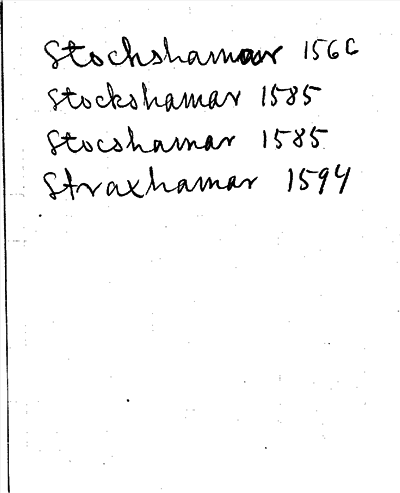 Stockshamar 1560
Stockshamar 1585
Stocshamar 1585
Straxhamar 1594